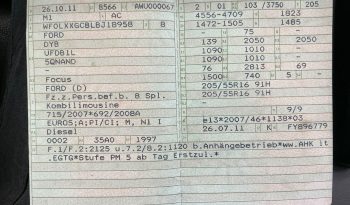 26.10.11 8566 AWU000067 2 01 103 /3750 205
M1 AC 4556-4709 1823
8 1472-1505 1485
FORD - 75 - -
DYB 139 2050 2050
UFDB1L 1090 1010 -
5QNAND 1090 1010 -
76 2813 69
Focus 1500 740 5 -
FORD (D) 205/55R16 91H
Fz.z.Pers.bef.b. 8 Spl. 205/55R16 91H
Kombilimousine
715/2007*692/2008A 9/9
EURO5;A;PI/CI; M, N1 I e13*2007/46*1138*03
Diesel 26.07.11 K FY896779
0002 35A0 1997
F.1/F.2:2125 u.7.2/8.2:1120 b.Anhängebetrieb*ww.AHK lt
.EGTG*Stufe PM 5 ab Tag Erstzul.*